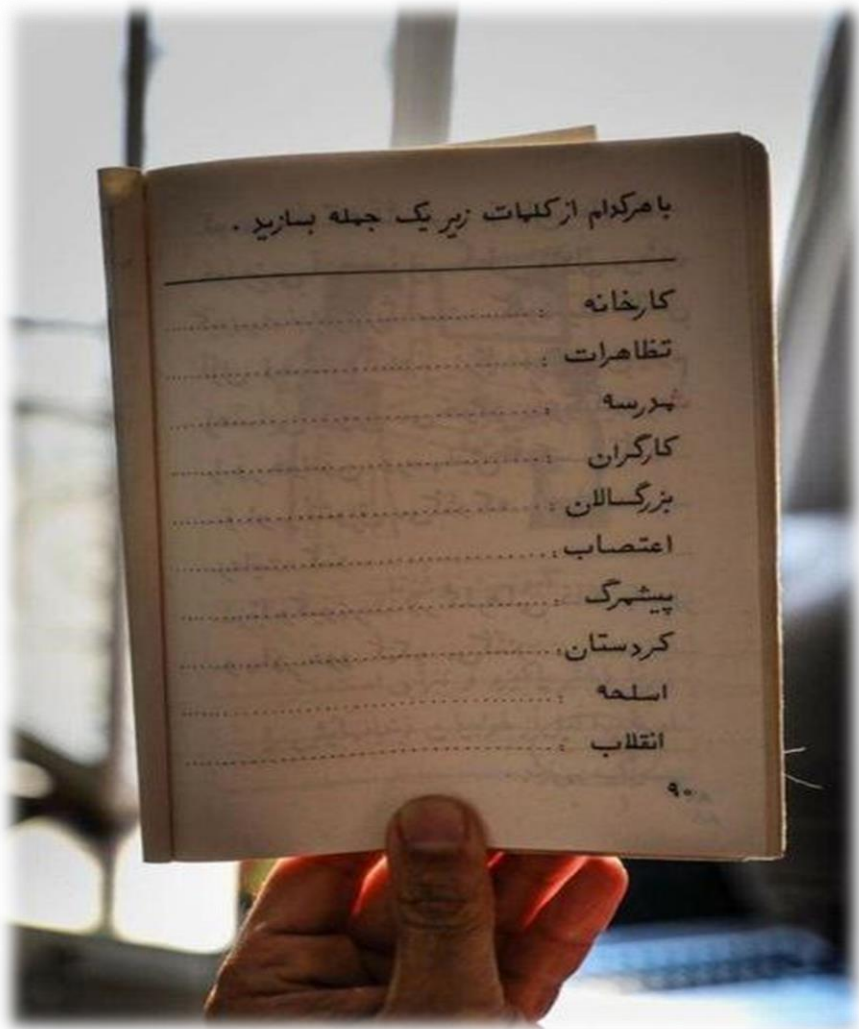 با هرکدام از کلمات زیر یک جمله بسازید .
کارخانه :
تظاهرات :
مدرسه :
کارگران :
بزرگسالان :
اعتصاب :
پیشمرگ :
کردستان :
اسلحه :
انقلاب :
۹۰